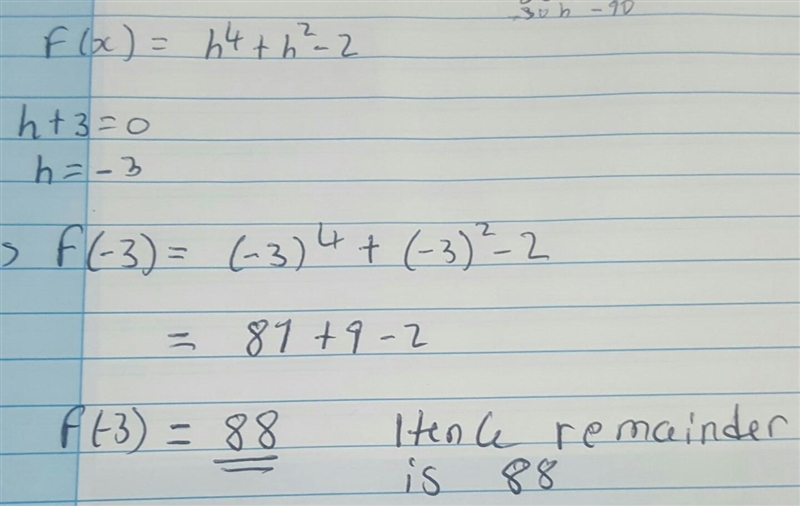 F(x) = h⁴ + h² - 2
h + 3 = 0
h = - 3
F(-3) = (-3)⁴ + (-3)² - 2
= 81 + 9 - 2
F(-3) = 88 Hence remainder
is 88